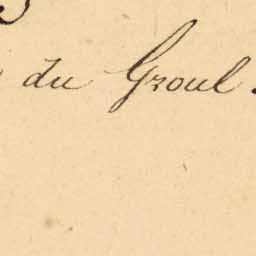 du Groul.